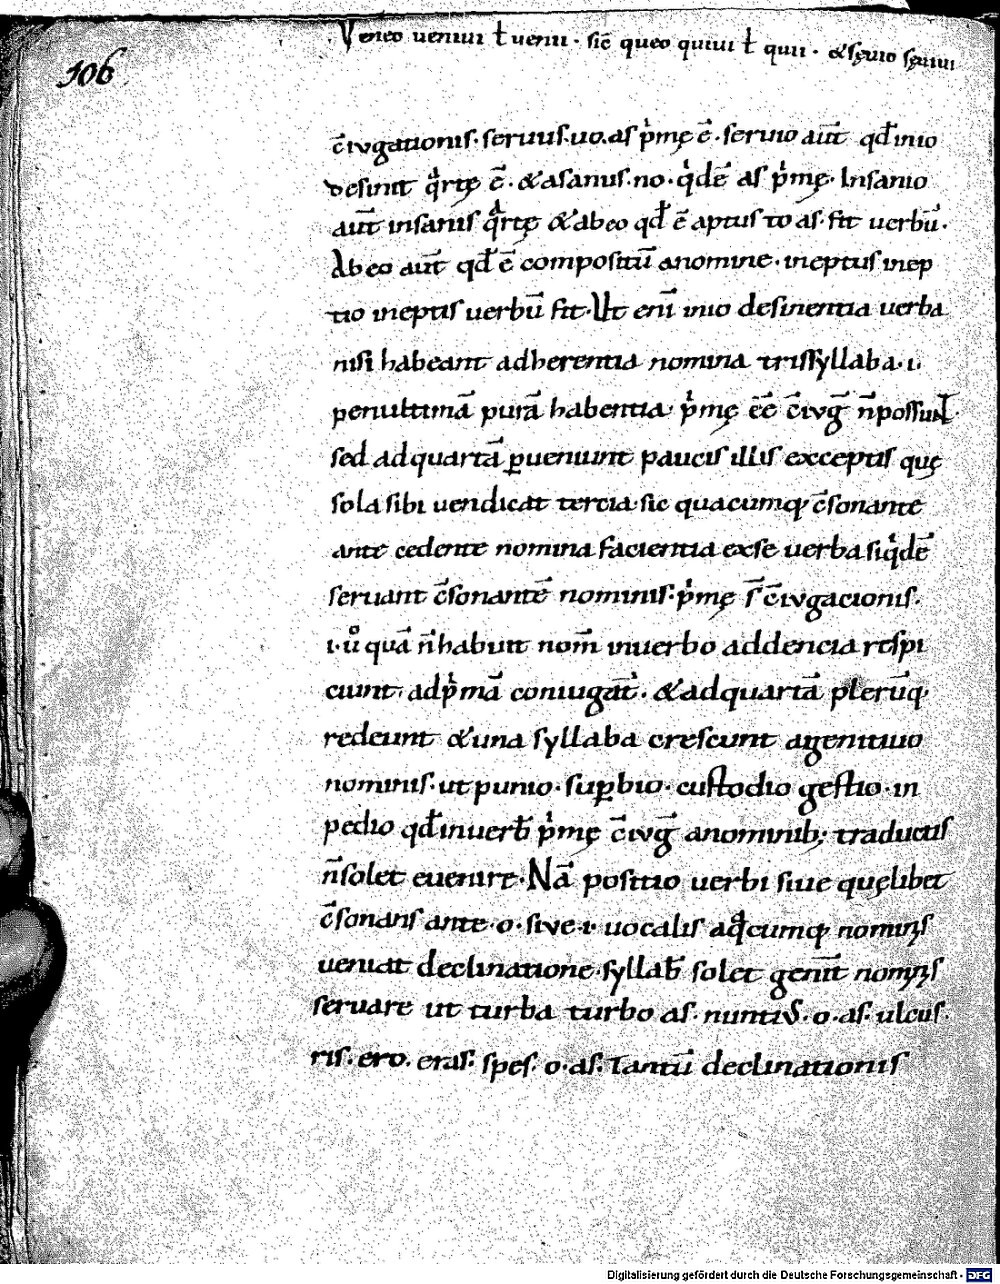 Veneo ueniui ł uenii · sic̄ queo quiui ł quii · &sęuio sęuiui
106
c̄iugationis · seruus · uo · as p̍mę ē · seruio aut̄ qđ inio
desinit q̊rtę ē · & asanus · no · q̍dē as p̍mę · Insanio
aut̄ insanis q̊rtę & abeo qđ ē aptus to as · fit uerbū ·
Abeo aut̄ qđ ē compositū anomine · ineptus inep
tio ineptis uerbū fit · Ut enī inio desinentia uerba
nisi habeant adherentia nomina trissyllaba · i ·
penultimā purā habentia p̍mę ēe c̄iuḡ n̄possunt ·
sed adquartā ꝑueniunt paucis illis exceptis quę
sola sibi uendicat tercia · sic quacumq; c̄sonante
ante cedente nomina facientia exse uerba siq̍dē
seruant c̄sonantē nominis · p̍mę s̄ c̄iugacionis ·
i · ů quā n̄habuit nom̄ inuerbo addencia respi
ciunt adp̍mā coniugat̄ · & adquartā plerūq;
redeunt & una syllaba crescunt agenitiuo
nominis · ut punio · suꝑbio · custodio gestio · in
pedio qđ inuerb̄ p̍mę c̄iuḡ anominib; traductis
n̄solet euenire · Nā positio uerbi siue quęlibet
c̄sonans ante · o · siue · i · uocalis aq̊cumq; nominis
ueniat declinatione · syllab̄ solet genit̄ nominis
seruare ut turba turbo as · nuntius · o · as · ulcus ·
ris · ero · eras · spes · o · as · Tantū declinationis
Digitalisierung gefördert durch die Deutsche Forschungsgemeinschaft - DFG